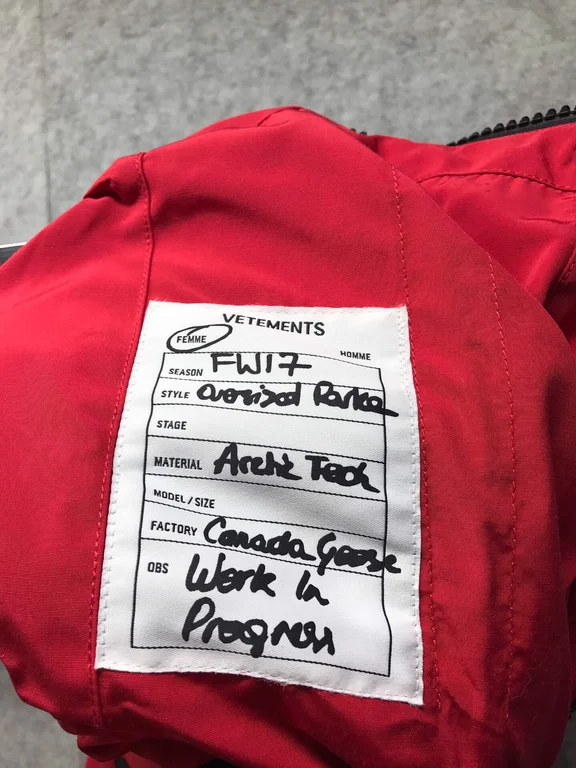 VETEMENTS
FEMME HOMME
SEASON FW17
STYLE Oversized Parka
STAGE
MATERIAL Arctic Tech
MODEL/SIZE
FACTORY Canada Goose
OBS Work In
Progress